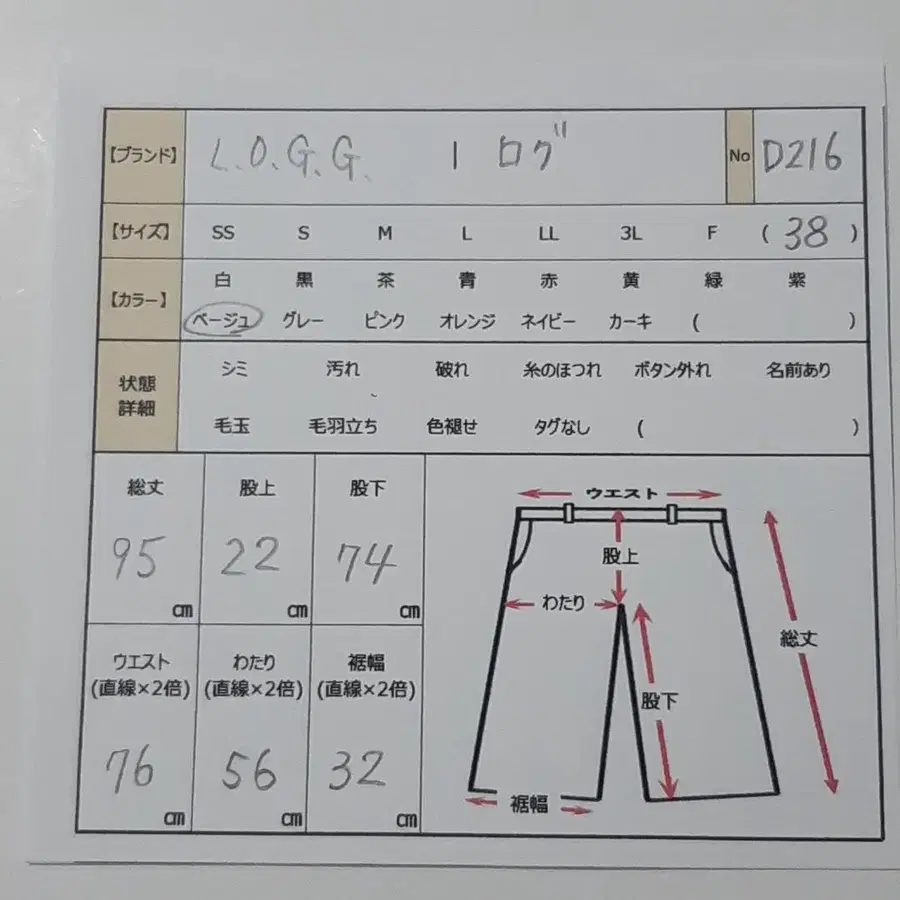 【ブランド】 L.O.G.G. | ログ No D216
【サイズ】 SS S M L LL 3L F ( 38 )
【カラー】 白 黒 茶 青 赤 黄 緑 紫
ベージュ グレー ピンク オレンジ ネイビー カーキ ( )
状態詳細 シミ 汚れ 破れ 糸のほつれ ボタン外れ 名前あり
毛玉 毛羽立ち 色褪せ タグなし ( )
総丈 股上 股下
95 cm 22 cm 74 cm
ウエスト わたり 裾幅
(直線×2倍) (直線×2倍) (直線×2倍)
76 cm 56 cm 32 cm
ウエスト
股上
わたり
総丈
股下
裾幅